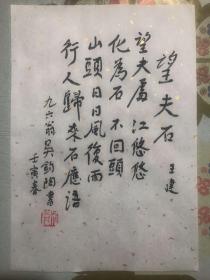 望夫石
王建
望夫處 江悠悠
化為石 不回頭
山頭日日風復雨
行人歸來石應語
九六翁吳
書
壬寅春